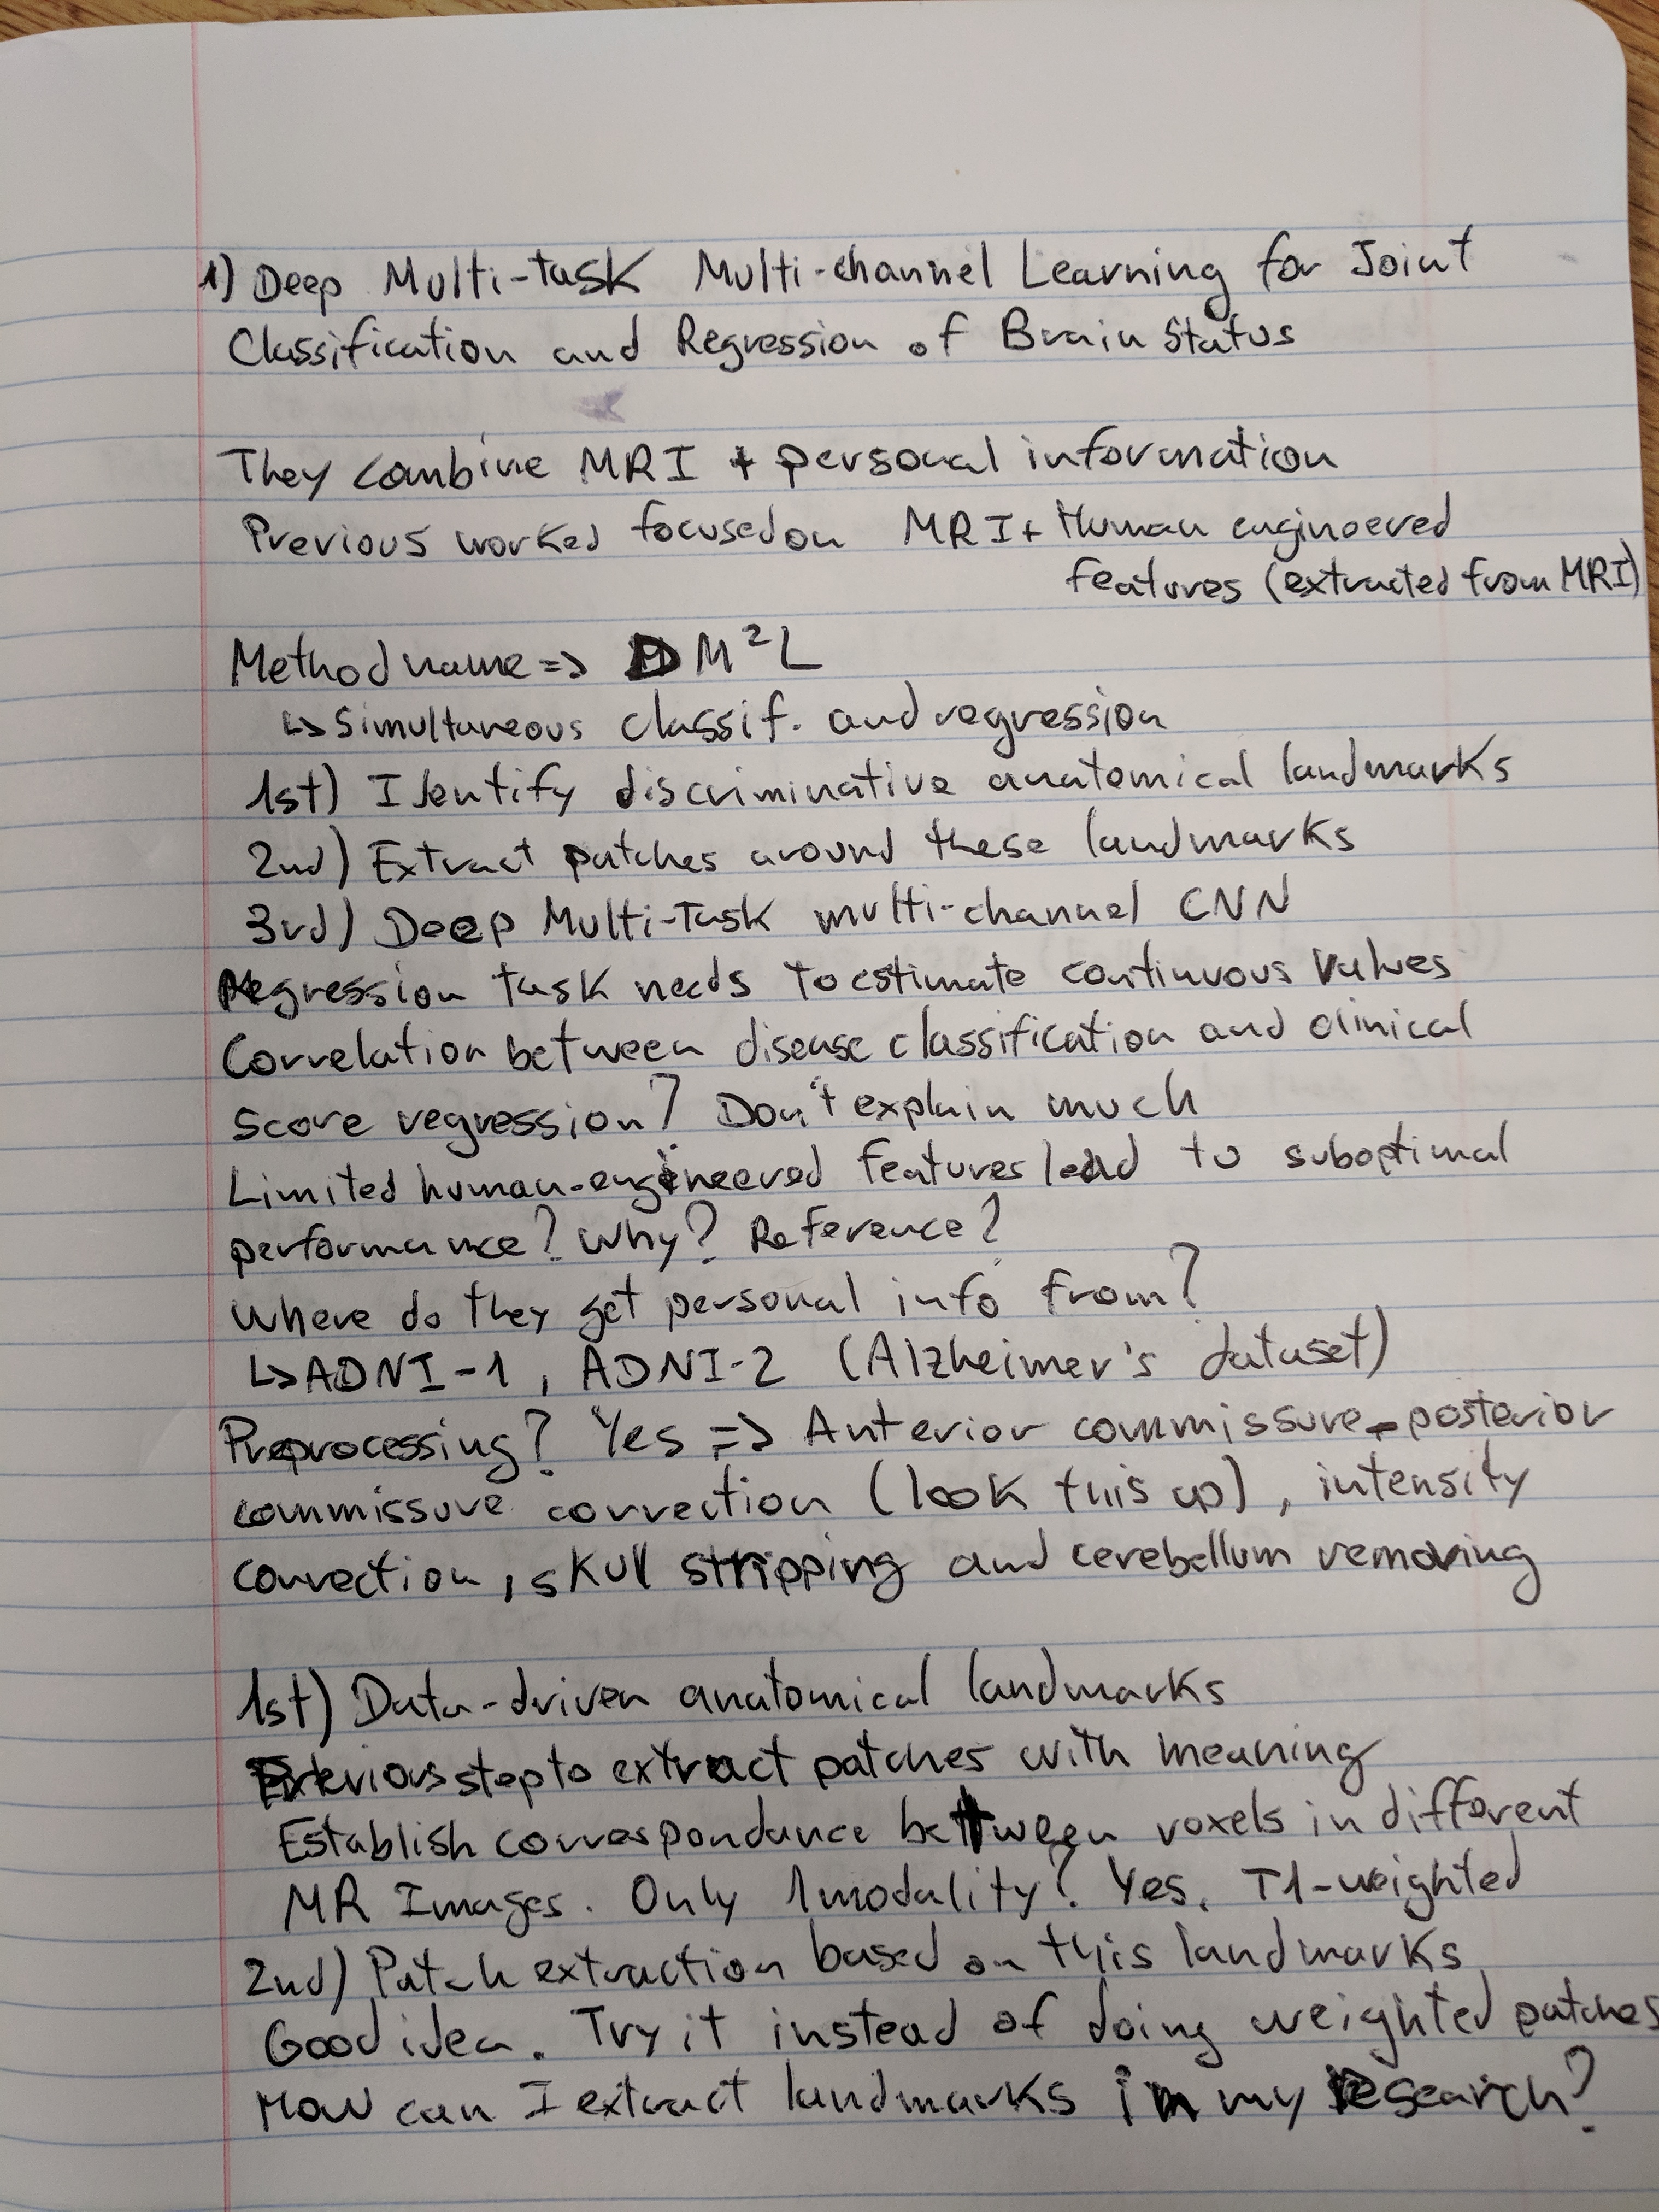 1) Deep Multi-task Multi-channel Learning for Joint
Classification and Regression of Brain Status
They combine MRI + personal information
Previous worked focused on MRI + Human engineered
features (extracted from MRI)
Method name => DM²L
↳ Simultaneous classif. and regression
1st) Identify discriminative anatomical landmarks
2nd) Extract patches around these landmarks
3rd) Deep Multi-Task multi-channel CNN
Regression task needs to estimate continuous values
Correlation between disease classification and clinical
score regression? Don't explain much
Limited human-engineered features lead to suboptimal
performance? Why? Reference?
Where do they get personal info from?
↳ ADNI-1, ADNI-2 (Alzheimer's dataset)
Preprocessing? Yes => Anterior commissure-posterior
commissure correction (look this up), intensity
correction, skull stripping and cerebellum removing
1st) Data-driven anatomical landmarks
Previous step to extract patches with meaning
Establish correspondance between voxels in different
MR Images. Only 1 modality? Yes, T1-weighted
2nd) Patch extraction based on this landmarks
Good idea. Try it instead of doing weighted patches
How can I extract landmarks in my research?